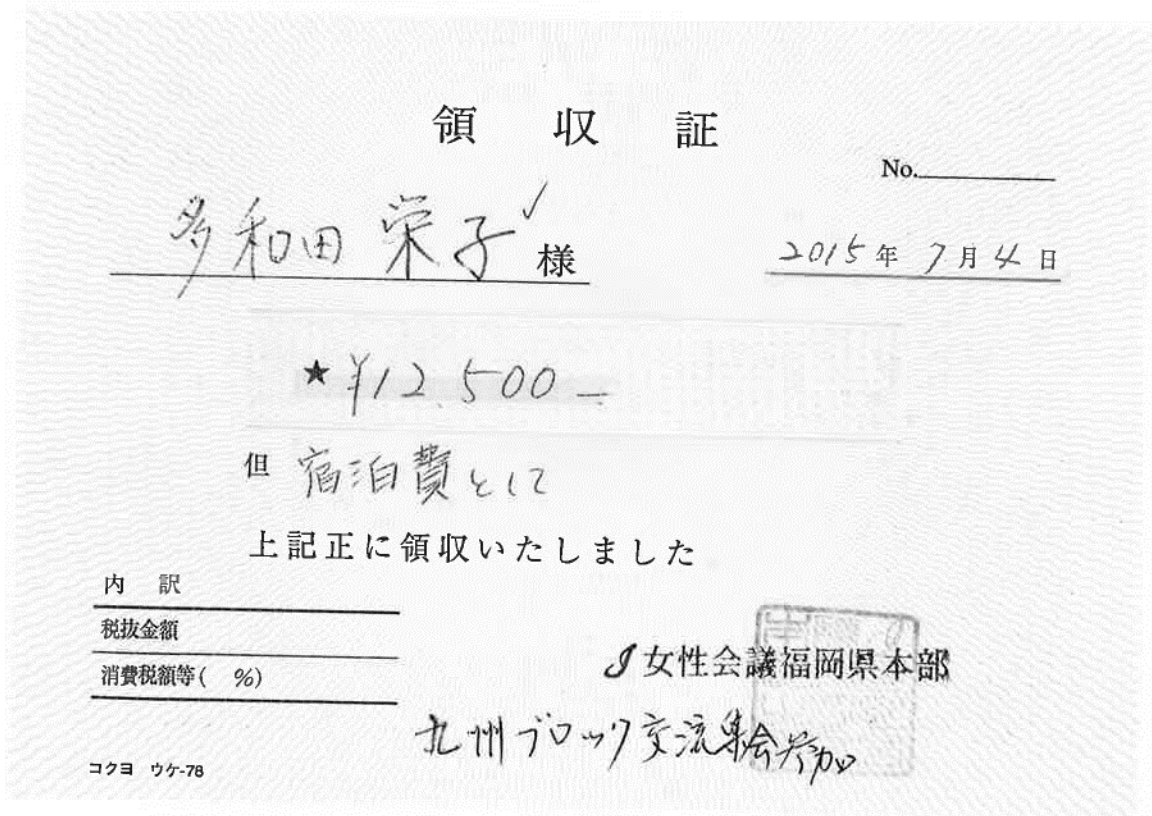 領収証
No.
多和田 栄子 様
2015年 7月 4日
★ ¥12,500-
但 宿泊費として
上記正に領収いたしました
内 訳
税抜金額
消費税額等( %)
I女性会議福岡県本部
九州ブロック交流集会参加
コクヨ ウケ-78